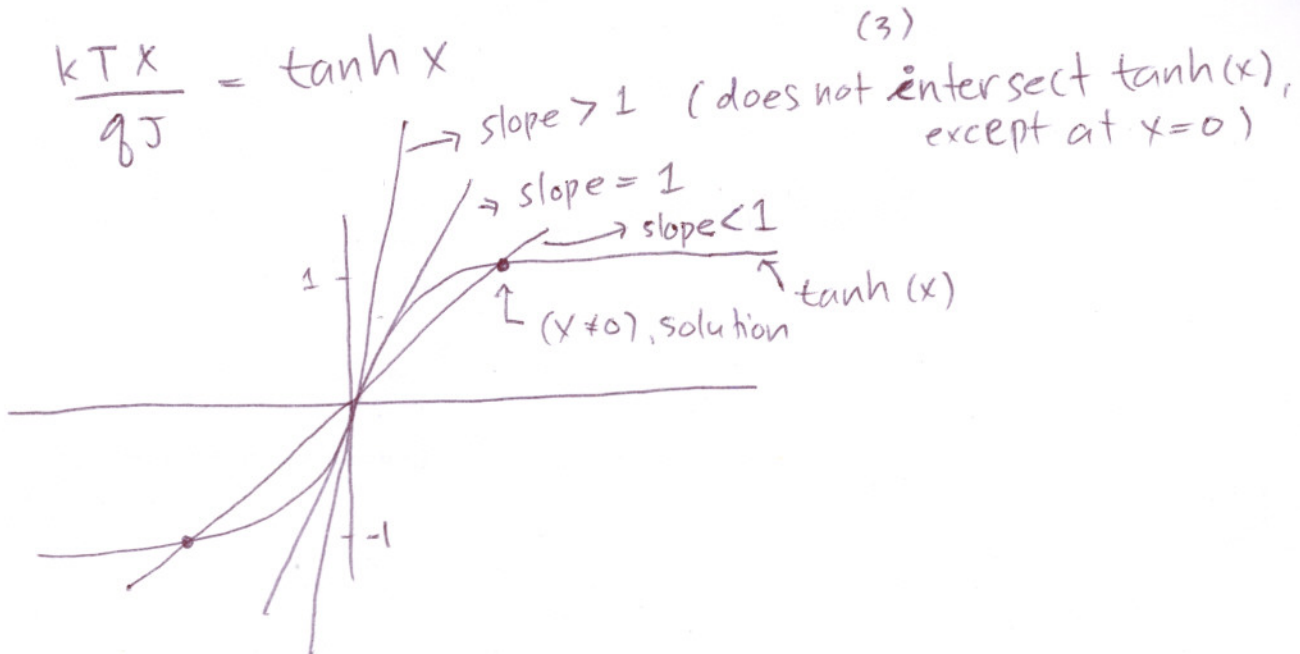 (3)
kTx/qJ = tanh x
→ slope > 1 (does not intersect tanh(x),
except at x=0)
→ slope = 1
→ slope < 1
1
tanh (x)
(x≠0), solution
-1